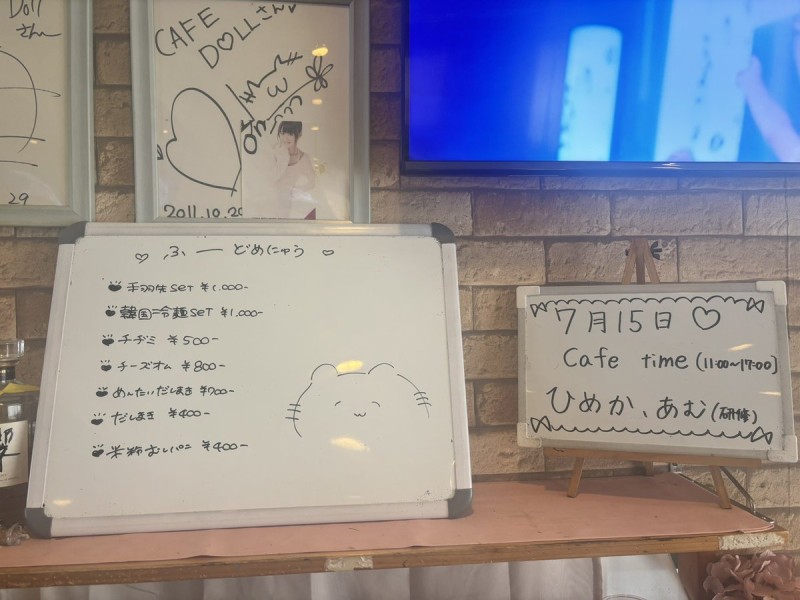 Doll
さん
29
CAFE
DOLLさん♥
2011.10.20
♡ ふーどめにゅう ♡
手羽先SET ¥1.000-
韓国冷麺SET ¥1.000-
チヂミ ¥500-
チーズオム ¥800-
めんたいだしまき ¥700-
だしまき ¥400-
米粉むしパン ¥400-
7月15日♡
Cafe time (11:00~17:00)
ひめか、あむ(研修)